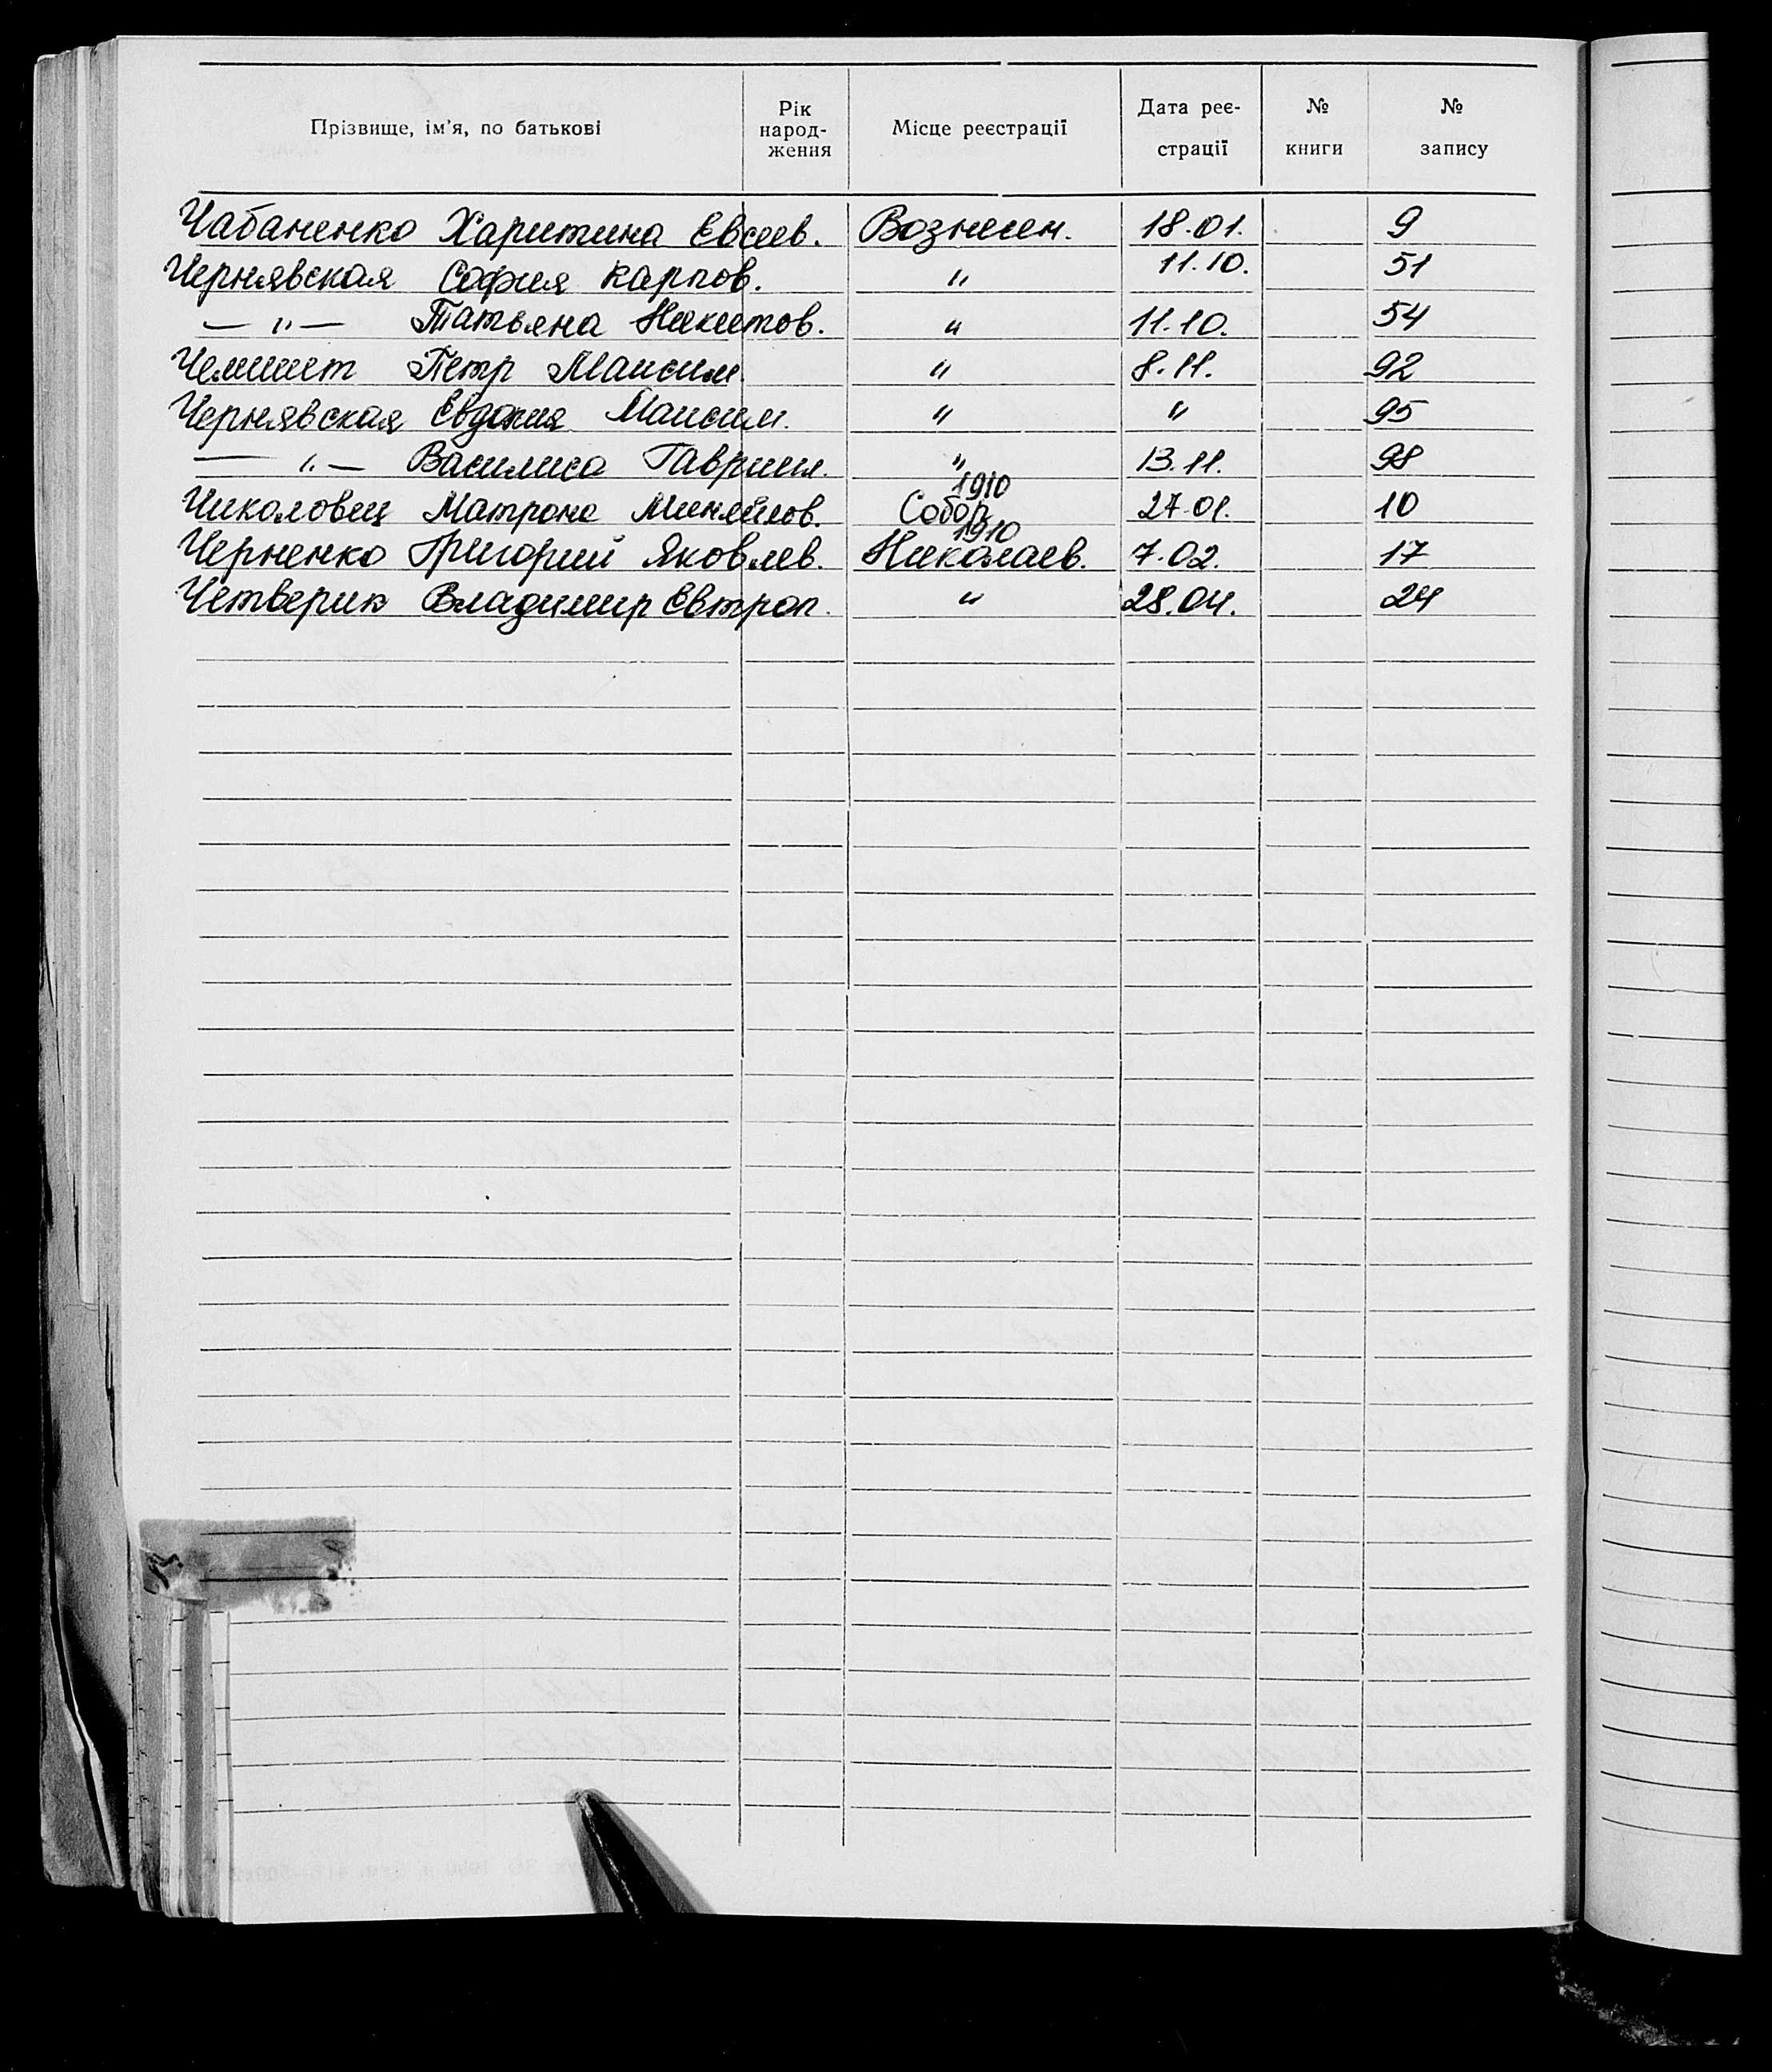 Прізвище, ім'я, по батькові Рік народ-ження Місце реєстрації Дата реє-страції № книги № запису
Чабаненко Харитина Евсеев. Вознесен. 18.01. 9
Чернявская София Карпов. " 11.10. 51
— " — Татьяна Никитов. " 11.10. 54
Петр Максим. " 8.11. 92
Чернявская Евдокия Максим. " " 95
— " — Василиса Гавриил. " 13.11. 98
1910
Чиколовец Матрона Собор 27.01. 10
1910
Черненко Григорий Яковлев. Николаев. 7.02. 17
Четверик Владимир Евтроп. " 28.04. 24